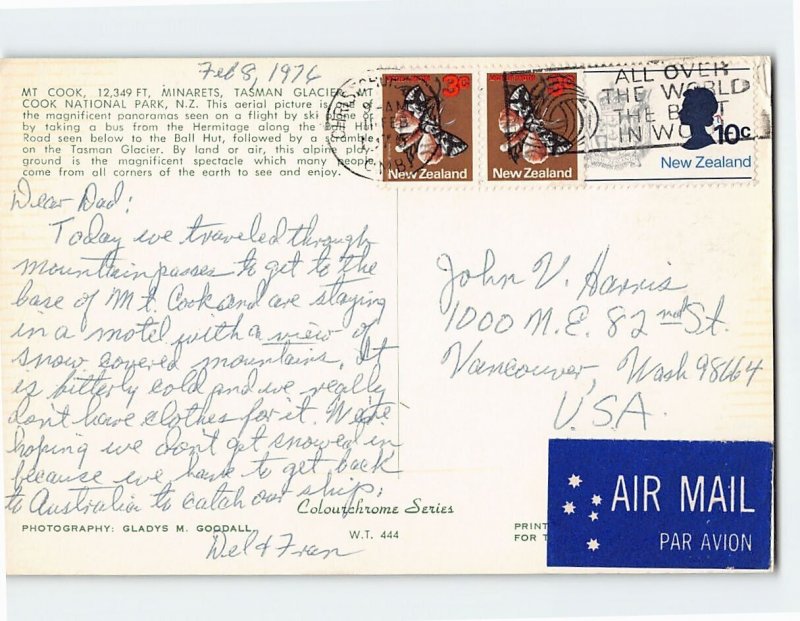 Feb 8, 1976
MT COOK, 12,349 FT, MINARETS, TASMAN GLACIER, MT
COOK NATIONAL PARK, N.Z. This aerial picture is
the magnificent panoramas seen on a flight by ski or
by taking a bus from the Hermitage along the
Road seen below to the Ball Hut, followed by a scramble
on the Tasman Glacier. By land or air, this alpine play-
ground is the magnificent spectacle which many people
come from all corners of the earth to see and enjoy.
Dear Dad:
Today we traveled through
mountain passes to get to the
base of Mt. Cook and are staying
in a motel with a view of
snow covered mountains. It
is bitterly cold and we really
don't have clothes for it. We're
hoping we don't get snowed in
because we have to get back
to Australia to catch our ship.
Colourchrome Series
PHOTOGRAPHY: GLADYS M. GOODALL
W.T. 444
Del & Fran
3c
New Zealand
New Zealand
10c
New Zealand
AM
FEB
ALL OVER
THE WORLD
THE BEST
IN WOOL
John V. Harris
1000 N.E. 82nd St.
Vancouver, Wash 98664
U.S.A.
PRINT
FOR T
AIR MAIL
PAR AVION